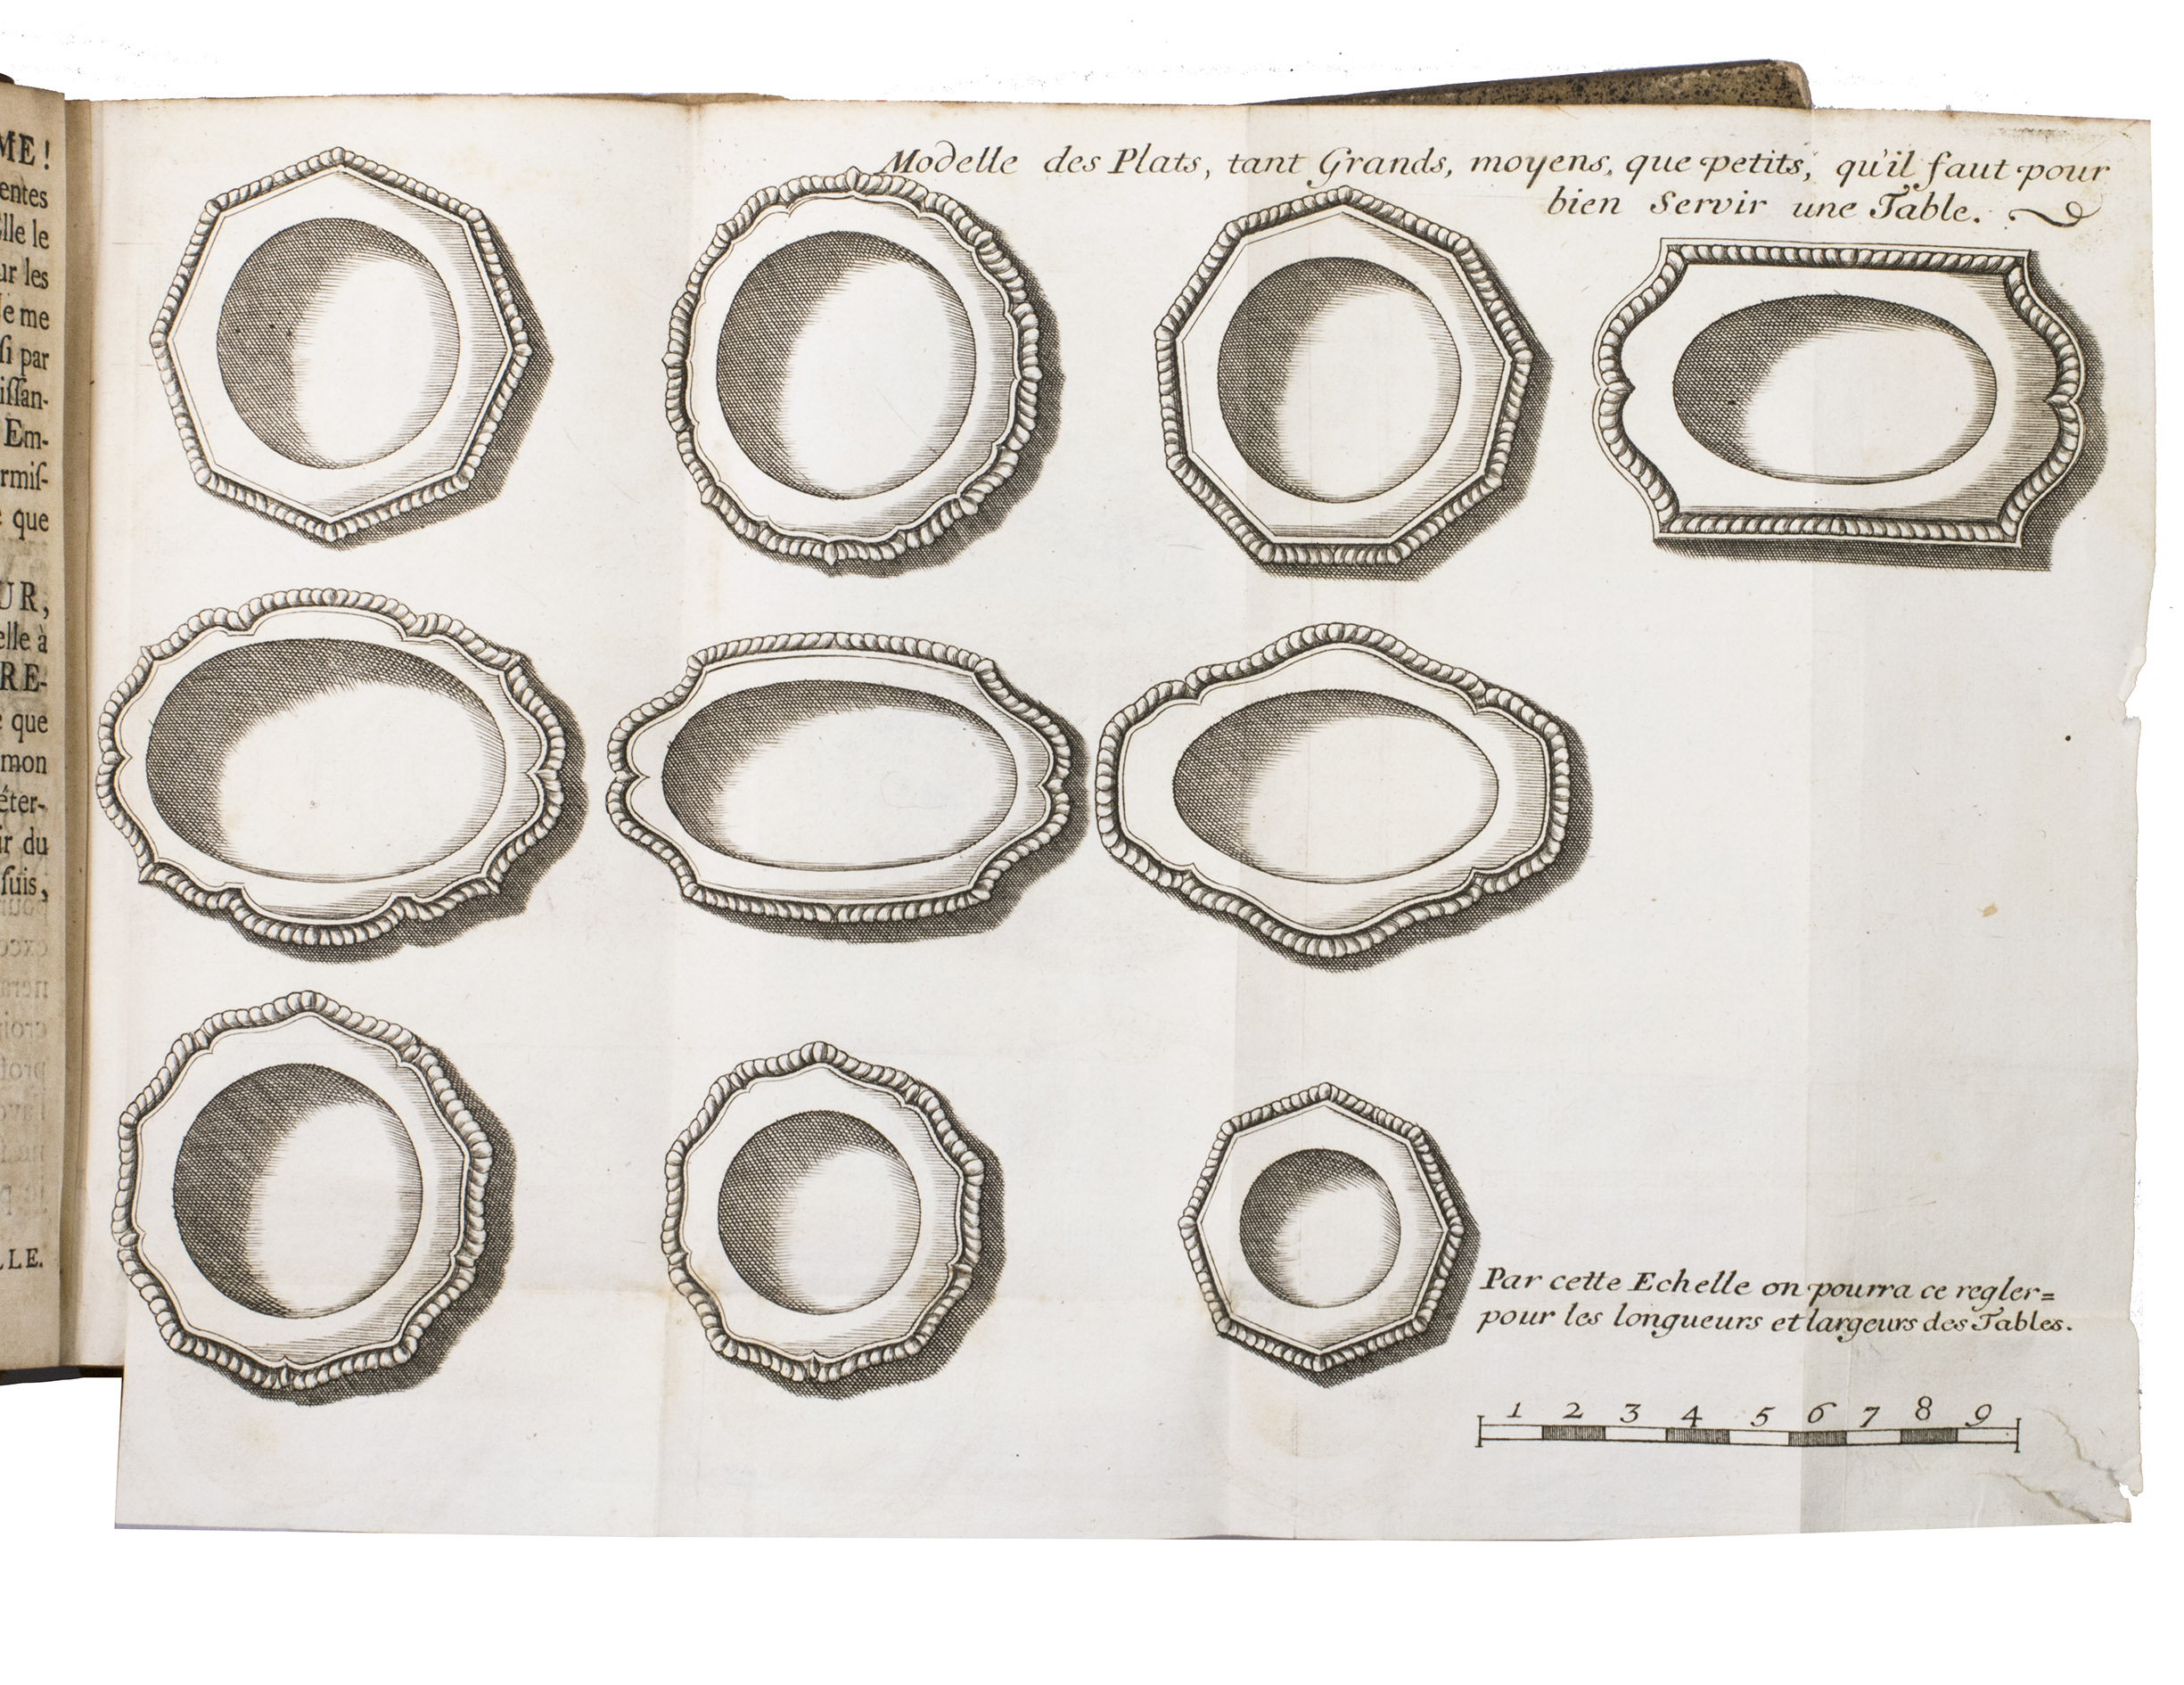 ME!
entes
Elle le
ur les
Je me
ſi par
iſſan-
Em-
rmiſ-
que
UR,
elle à
RE-
que
mon
éter-
ir du
ſuis,
LLE.
Modelle des Plats, tant Grands, moyens, que petits, qu'il faut pour
bien Servir une Table.
Par cette Echelle on pourra ce regler=
pour les longueurs et largeurs des Tables.
1 2 3 4 5 6 7 8 9